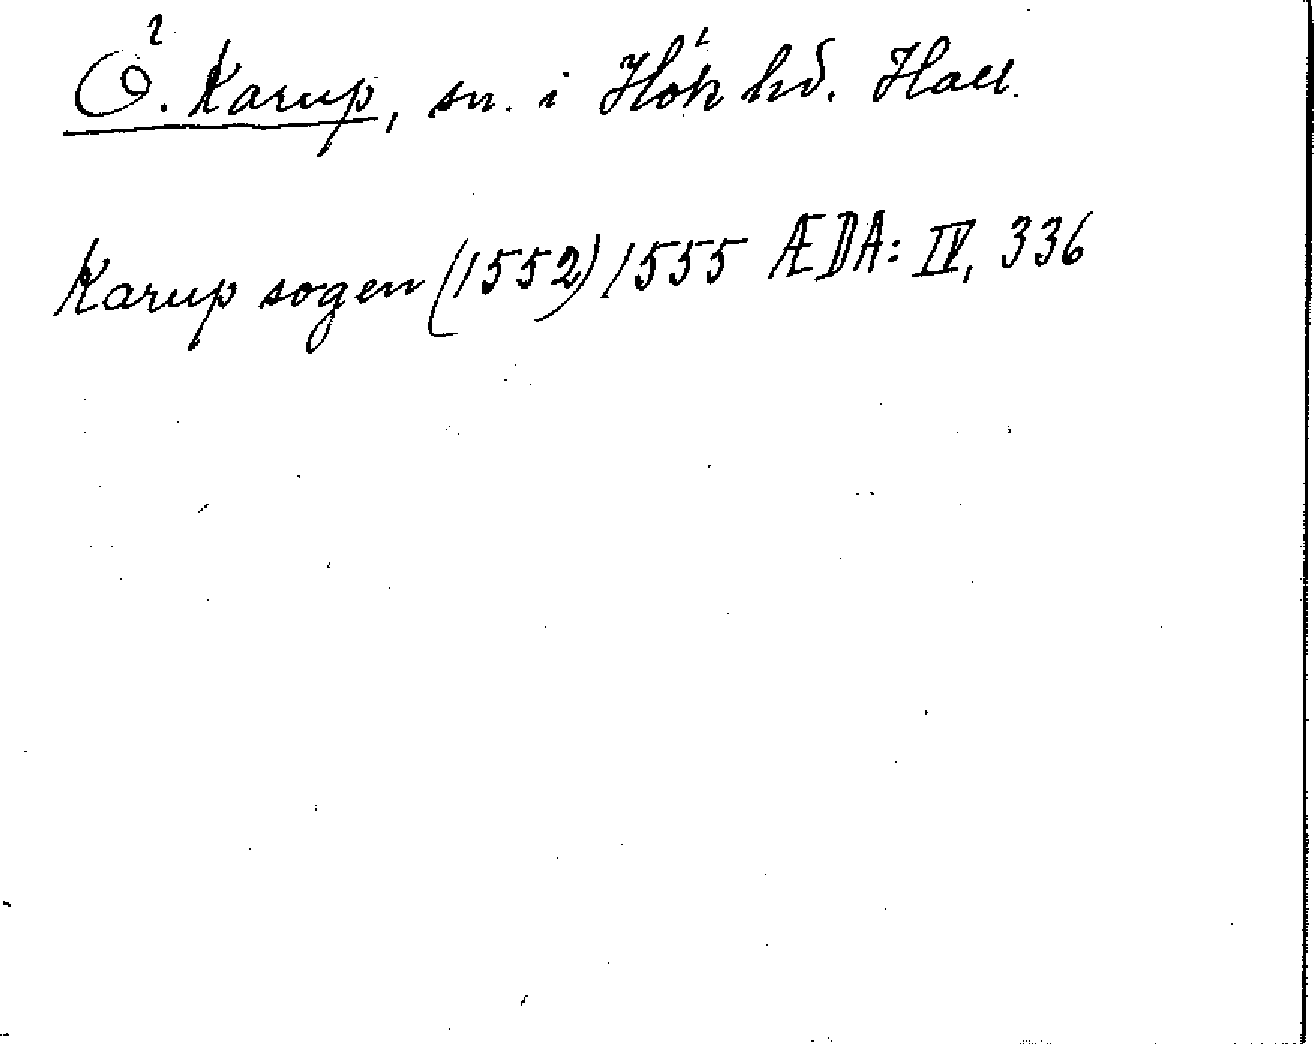 Ö. Karup, sn. i Hök hd. Hall.
Karup sogen (1552) 1555 ÆDA: IV, 336